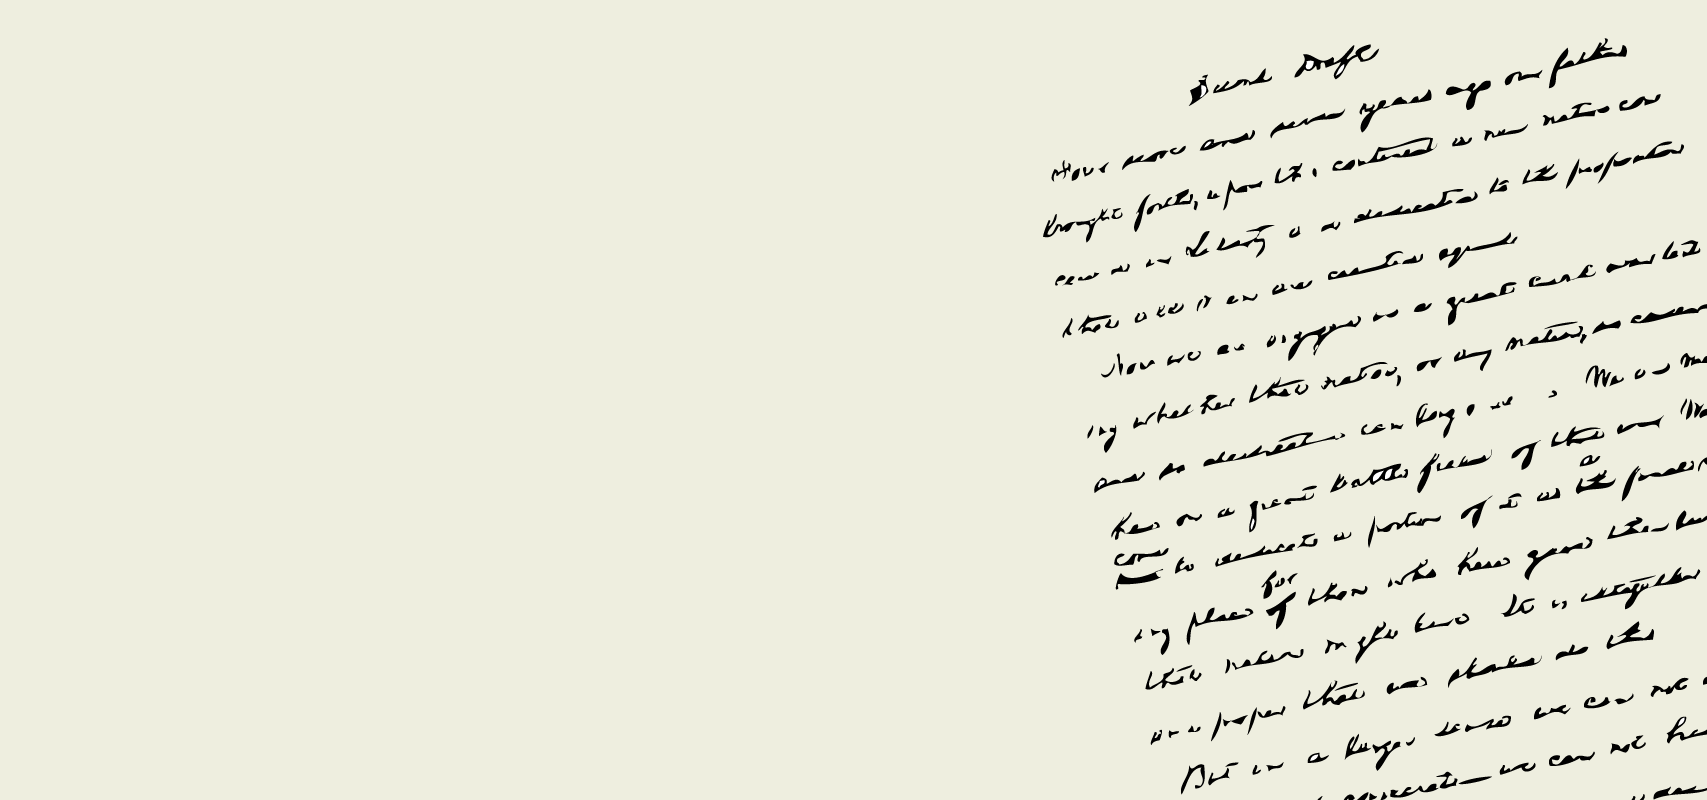 Second Draft
Four score and seven years ago our fathers
brought forth, upon this continent a new nation con
ceived in Liberty and dedicated to the proposition
that all men are created equal
Now we are engaged in a great civil war test
ing whether that nation, or any nation, so conceiv
and so dedicated can long We are me
here on a great battle field of that war
come
to dedicate a portion of it as a the final
for
ing place of those who here gave their
that nation might live It is altogether
and proper that we should do this
But in a larger sense we can not
consecrate we can not